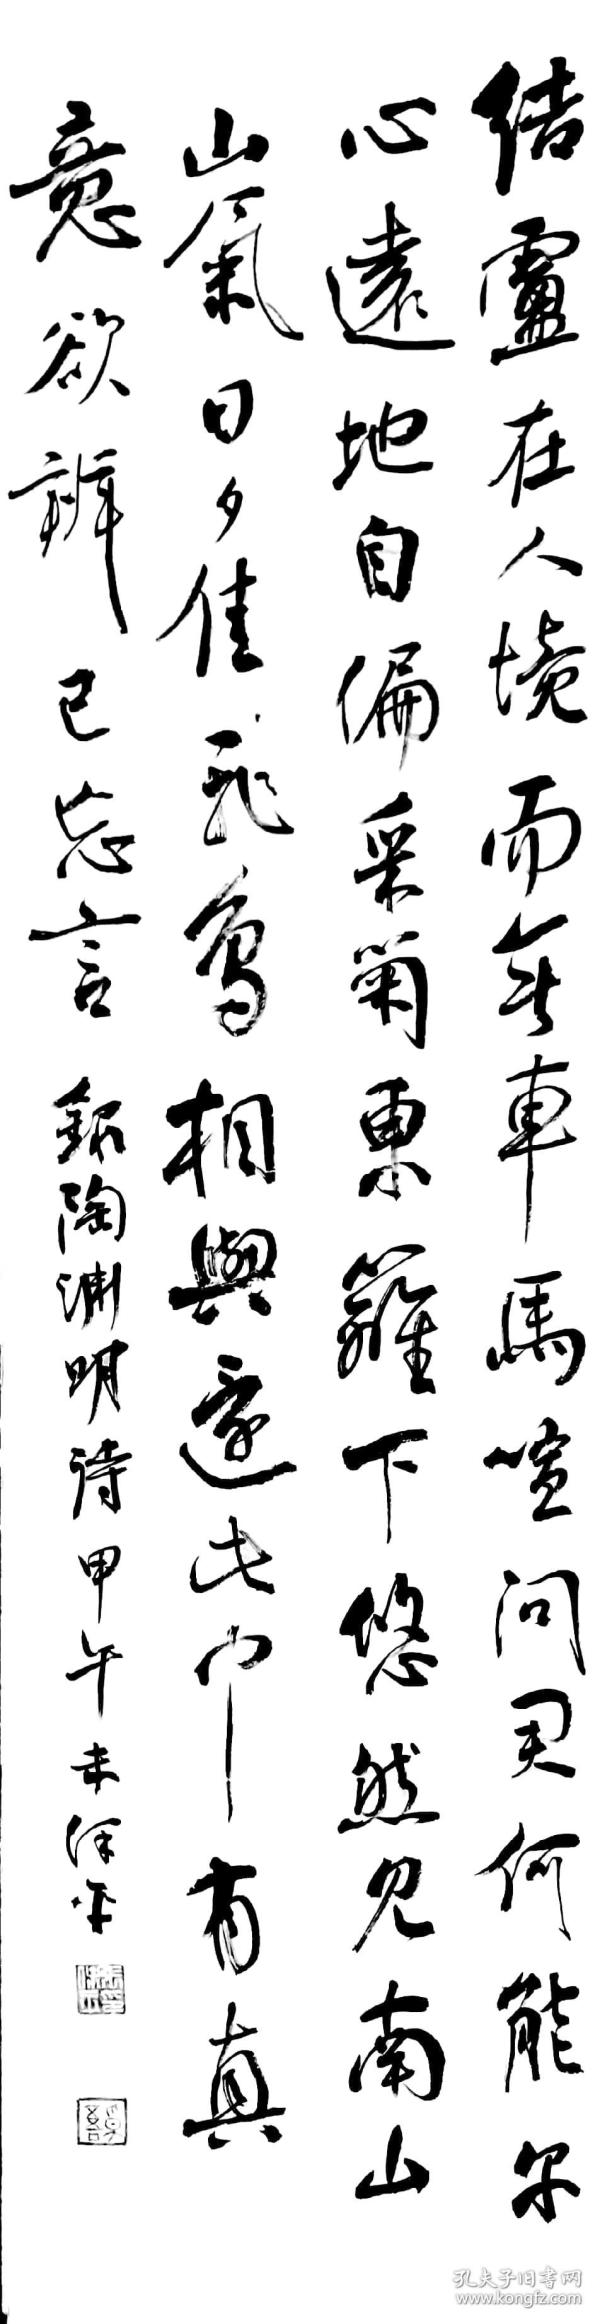 结廬在人境而无車馬喧问君何能尔
心遠地自偏采菊東籬下悠然见南山
山氣日夕佳飛鸟相與還此中有真
意欲辨已忘言
録陶渊明詩甲午
孔夫子旧书网
www.kongfz.com